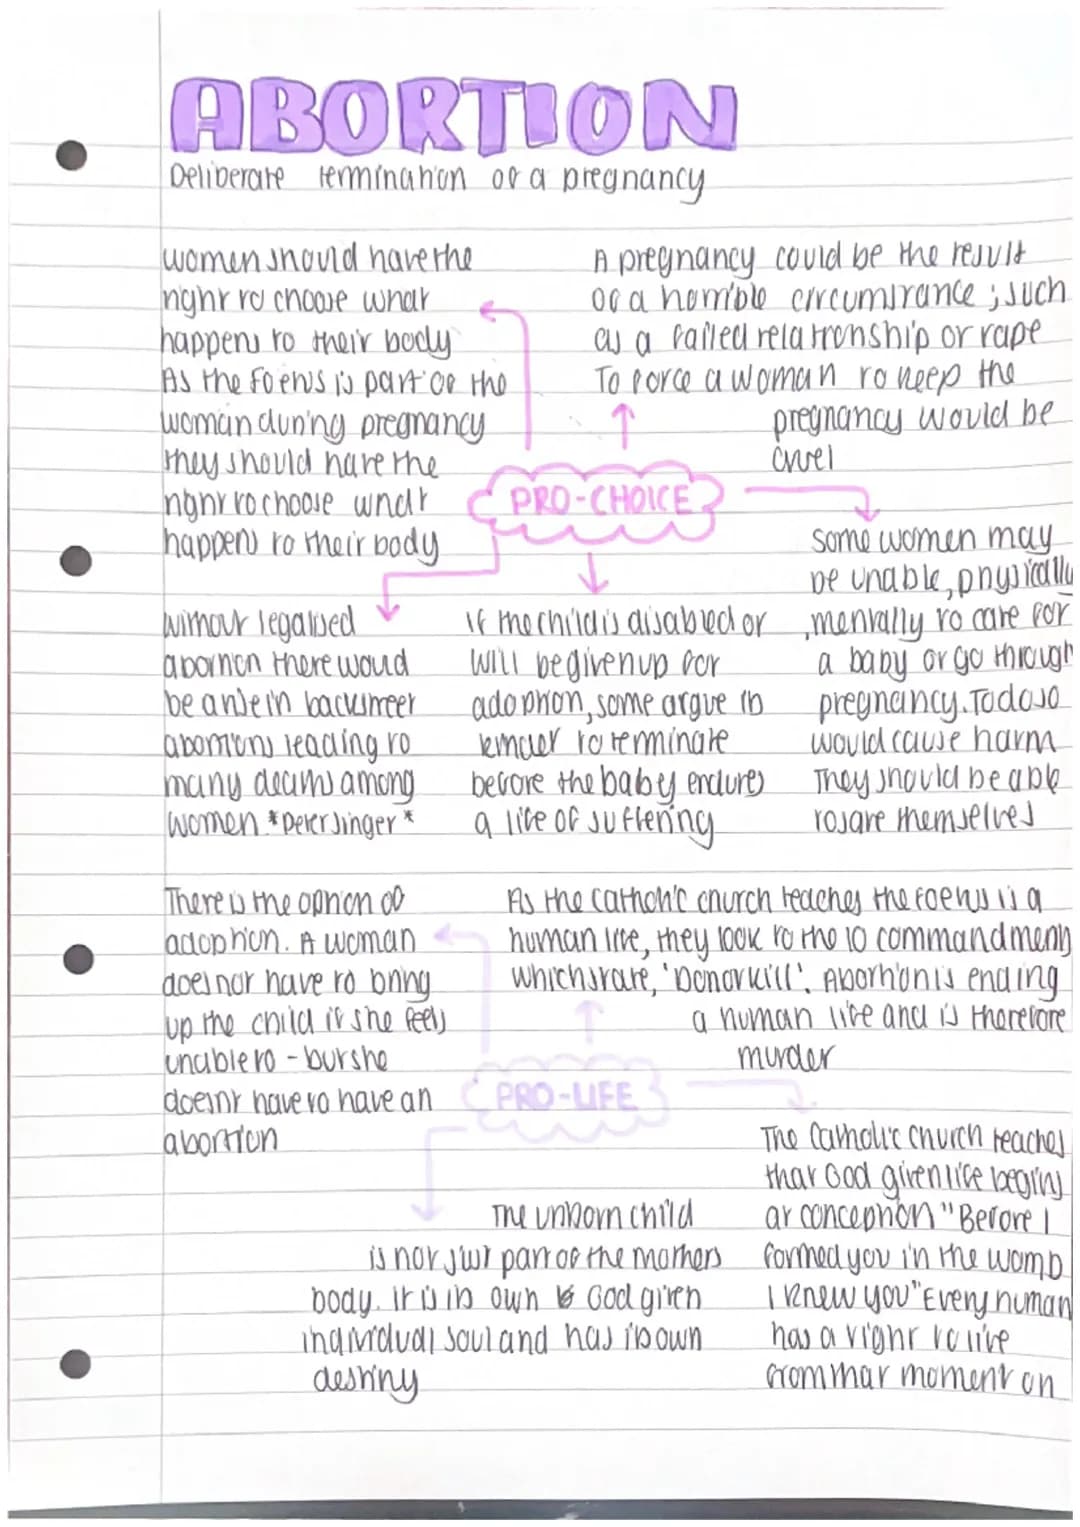 ABORTION
Deliberate termination of a pregnancy
women should have the
right to choose what
happens to their body
As the foetus is part of the
woman during pregnancy
they should have the
right to choose what
happens to their body
A pregnancy could be the result
of a horrible circumstance; such
as a failed relationship or rape
To force a woman to keep the
pregnancy would be
cruel
PRO-CHOICE
Some women may
be unable, physically
, mentally to care for
a baby or go through
pregnancy. To do so
would cause harm
They should be able
to save themselves
without legalised
abortion there would
be in backstreet
abortions leading to
many deaths among
women *Peter Singer*
If the child is disabled or
will be given up for
adoption, some argue its
kinder to terminate
before the baby endures
a life of suffering
There is the opinion of
adoption. A woman
does not have to bring
up the child if she feels
unable to - but she
doesnt have to have an
abortion
As the Catholic church teaches the foetus is a
human life, they look to the 10 commandments
which state, 'Do not kill'. Abortion is ending
a human life and is therefore
murder
PRO-LIFE
The unborn child
is not just part of the mothers
body. It is its own God given
individual soul and has its own
destiny
The Catholic Church teaches
that God given life begins
at conception "Before I
formed you in the womb
I knew you" Every human
has a right to live
from that moment on